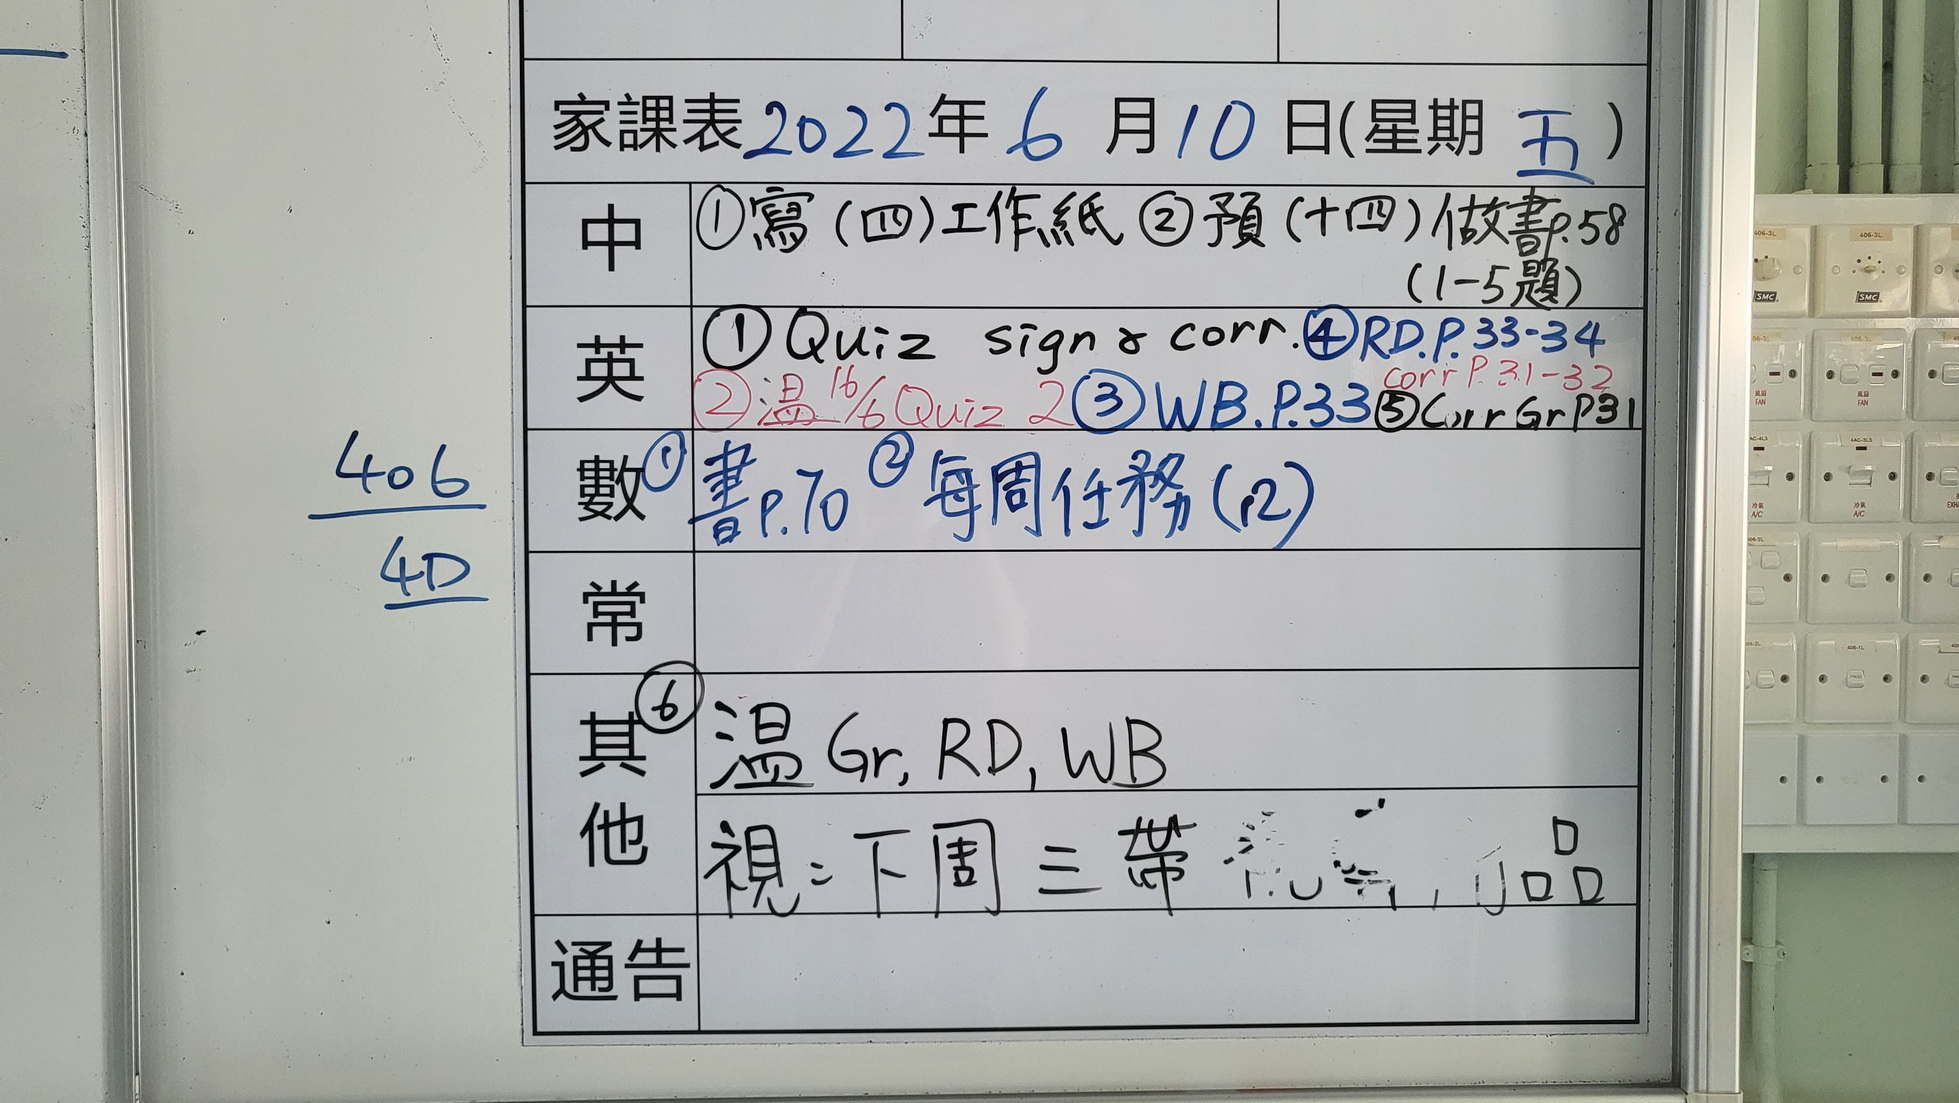 家課表2022年6月10日(星期五)
中 ①寫(四)工作紙 ②預(十四)做書P.58
(1-5題)
英 ①Quiz sign & corr. ④RD.P.33-34
corr P.31-32
②温16/6 Quiz 2 ③WB.P.33 ⑤Corr Gr P31
數 ①書P.70 ②每周任務(12)
常
其他 ⑥温 Gr, RD, WB
視:下周三帶 品
通告
406
4D
406-3L
406-3L
SMC
SMC
風扇
FAN
風扇
FAN
冷氣
A/C
冷氣
A/C
406-1L